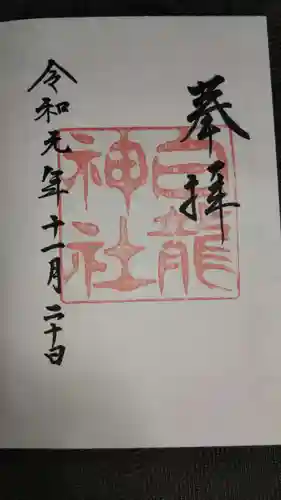 奉拝
白龍神社
令和元年十一月二十日